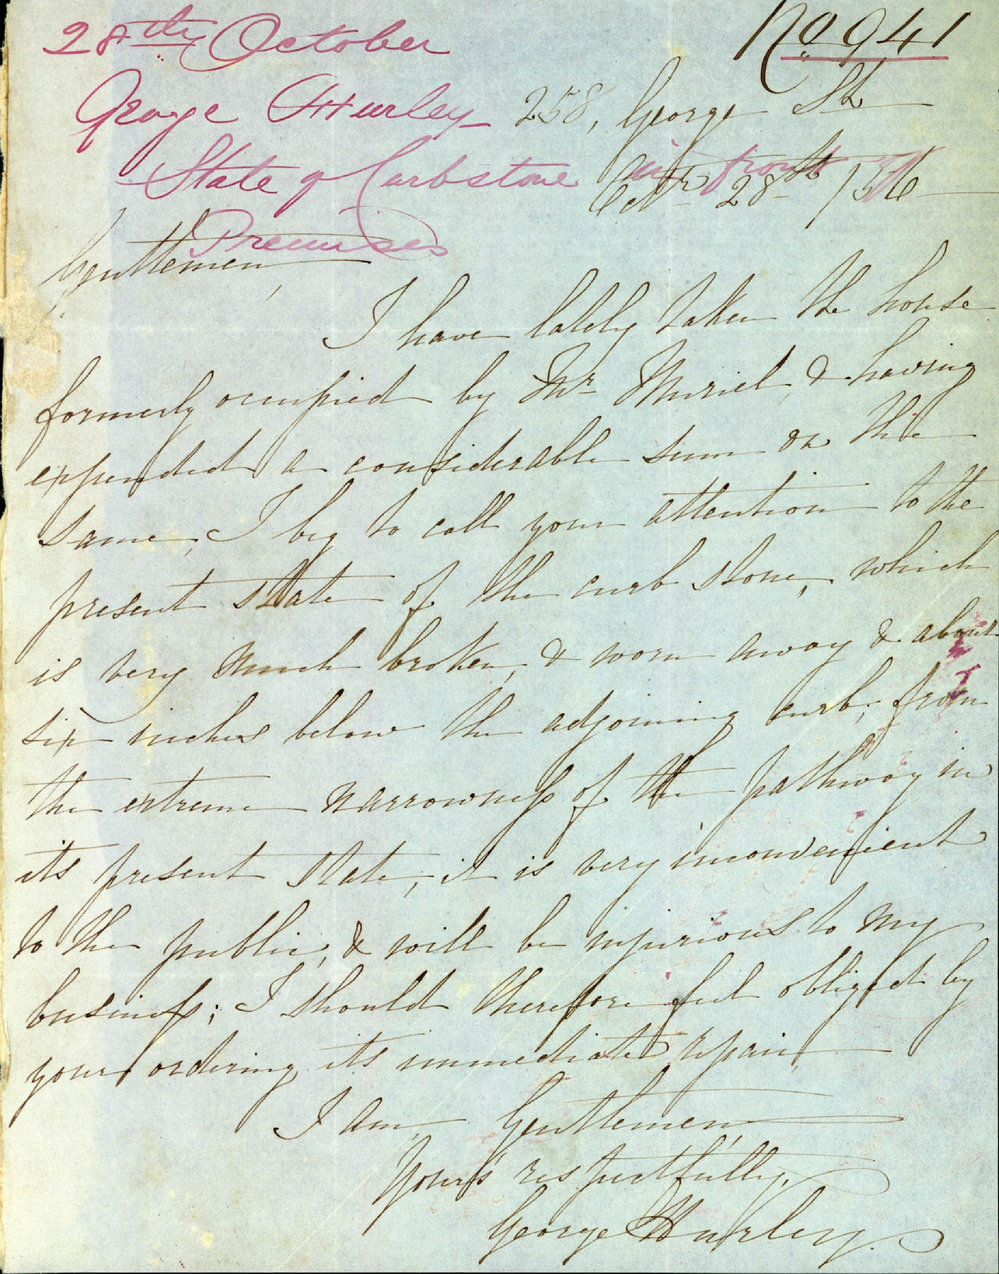 28th October
No 941
George Hurley
258, George St
State of Curbstone in front
Octr 28th
Premises
Gentlemen,
I have lately taken the house
formerly occupied by Mr Muriel, & having
expended a considerable sum on the
same, I beg to call your attention to the
present state of the curb stone, which
is very much broken, & worn away & about
six inches below the adjoining curb, from
the extreme narrowness of the pathway in
its present state, it is very inconvenient
to the public, & will be injurious to my
business; I should therefore feel obliged by
your ordering its immediate repair,
I am, Gentlemen
Yours respectfully,
George Hurley.